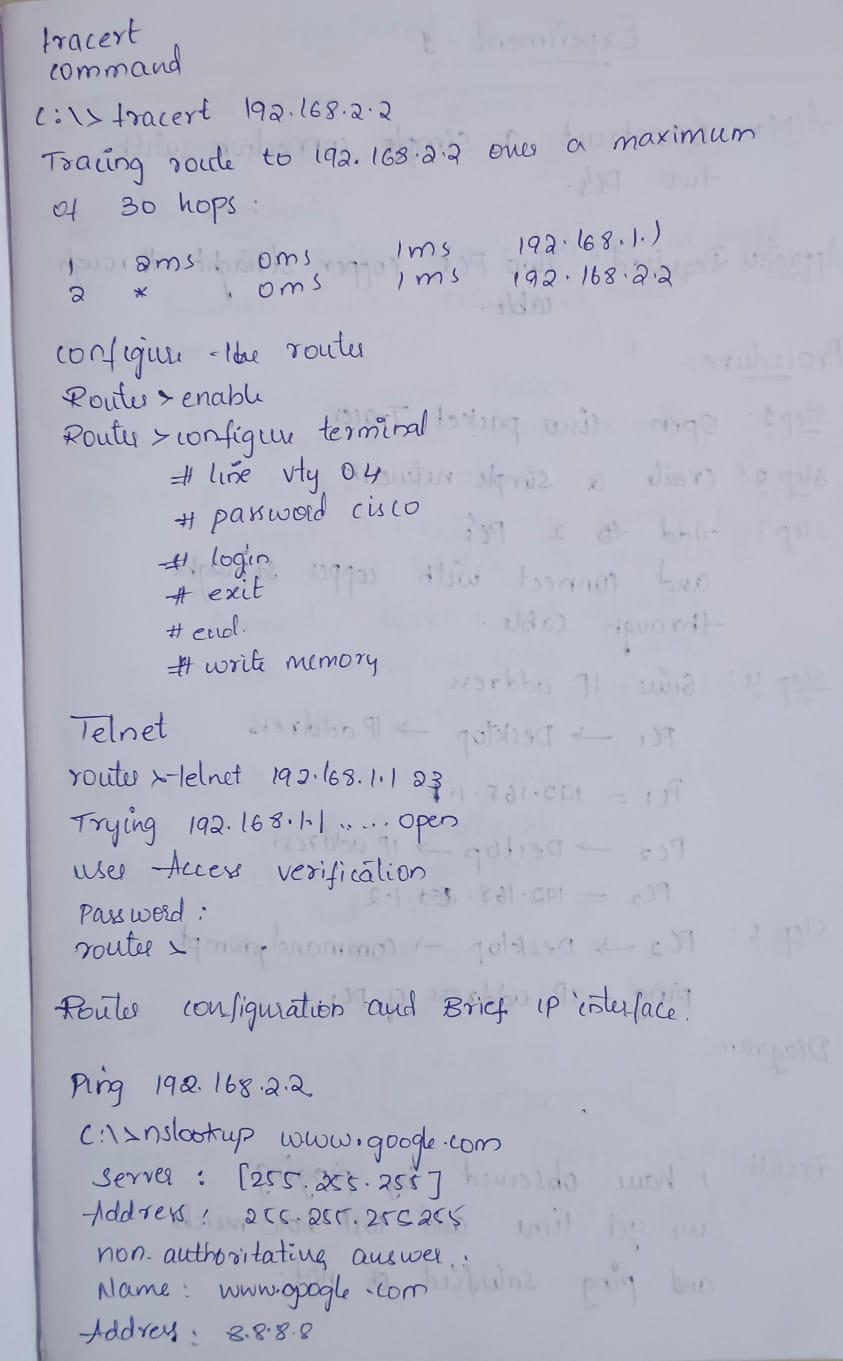 tracert
command
C:\> tracert 192.168.2.2
Tracing route to 192.168.2.2 over a maximum
of 30 hops:
1 2ms 0ms 1ms 192.168.1.1
2 * 0ms 1ms 192.168.2.2
configure the router
Router > enable
Router > configure terminal
# line vty 0 4
# password cisco
# login
# exit
# end.
# write memory
Telnet
router > telnet 192.168.1.1 23
Trying 192.168.1.1 ..... open
User Access verification
Password :
router >
Router configuration and Brief IP interface.
Ping 192.168.2.2
C:\>nslookup www.google.com
Server : [255.255.255]
Address : 255.255.255 255
non-authoritating answer :
Name : www.google.com
Address : 8.8.8.8